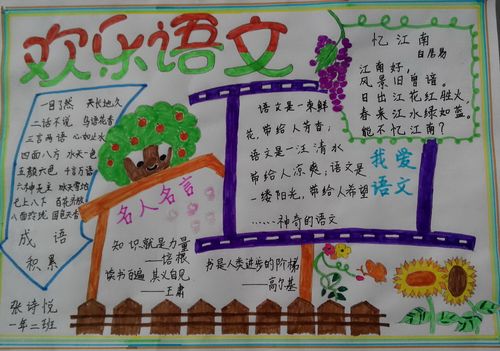 欢乐语文
一目了然 天长地久
二话不说 鸟语花香
三言两语 心如止水
四面八方 水天一色
五颜六色 千言万语
六神无主 冰天雪地
七上八下 百花齐放
八面玲珑 国色天香
成语
积累
张诗悦
一年二班
名人名言
知识就是力量
——培根
读书百遍 其义自见
——王肃
书是人类进步的阶梯
——高尔基
语文是一束鲜
花,带给人芳香;
语文是一汪清水
带给人凉爽;语文是
一缕阳光,带给人希望
……神奇的语文
我爱
语文
忆江南
白居易
江南好,
风景旧曾谙。
日出江花红胜火,
春来江水绿如蓝。
能不忆江南?